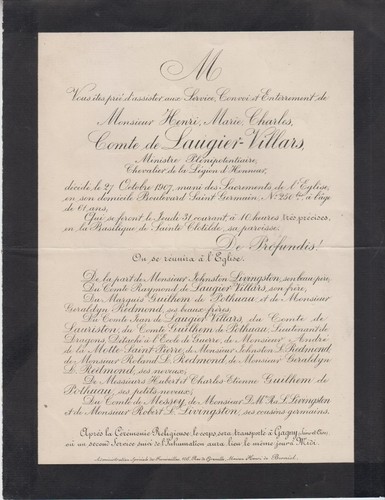 M
Vous êtes prié d'assister aux Service, Convoi et Enterrement de
Monsieur Henri, Marie, Charles,
Comte de Laugier-Villars,
Ministre Plénipotentiaire,
Chevalier de la Légion d'Honneur,
décédé, le 27 Octobre 1907, muni des Sacrements de l'Eglise,
en son domicile Boulevard Saint Germain, No 250 bis, à l'âge
de 61 ans,
Qui se feront le Jeudi 31 courant à 10 heures très précises,
en la Basilique de Sainte Clotilde, sa paroisse.
De Profundis!
On se réunira à l'Eglise.
De la part de Monsieur Johnston Livingston, son beau père,
Du Comte Raymond de Laugier Villars, son frère,
Du Marquis Guilhem de Pothuau et de Monsieur
Geraldyn Redmond, ses beaux-frères,
Du Comte Jean de Laugier Villars, du Comte de
Lauriston, du Comte Guilhem de Pothuau, Lieutenant de
Dragons, Détaché à l'Ecole de Guerre, de Monsieur André
de la Motte Saint Pierre, de Monsieur Johnston L. Redmond,
de Monsieur Roland L. Redmond, de Monsieur Geraldyn
L. Redmond, ses neveux,
De Messieurs Hubert et Charles Etienne Guilhem de
Pothuau, ses petits neveux,
Du Comte de Moissey, de Monsieur Livingston
et de Monsieur Robert L. Livingston, ses cousins germains.
Après la Cérémonie Religieuse, le corps sera transporté à Gagny (Seine et Oise)
où un second Service suivi de l'Inhumation aura lieu le même jour à Midi.